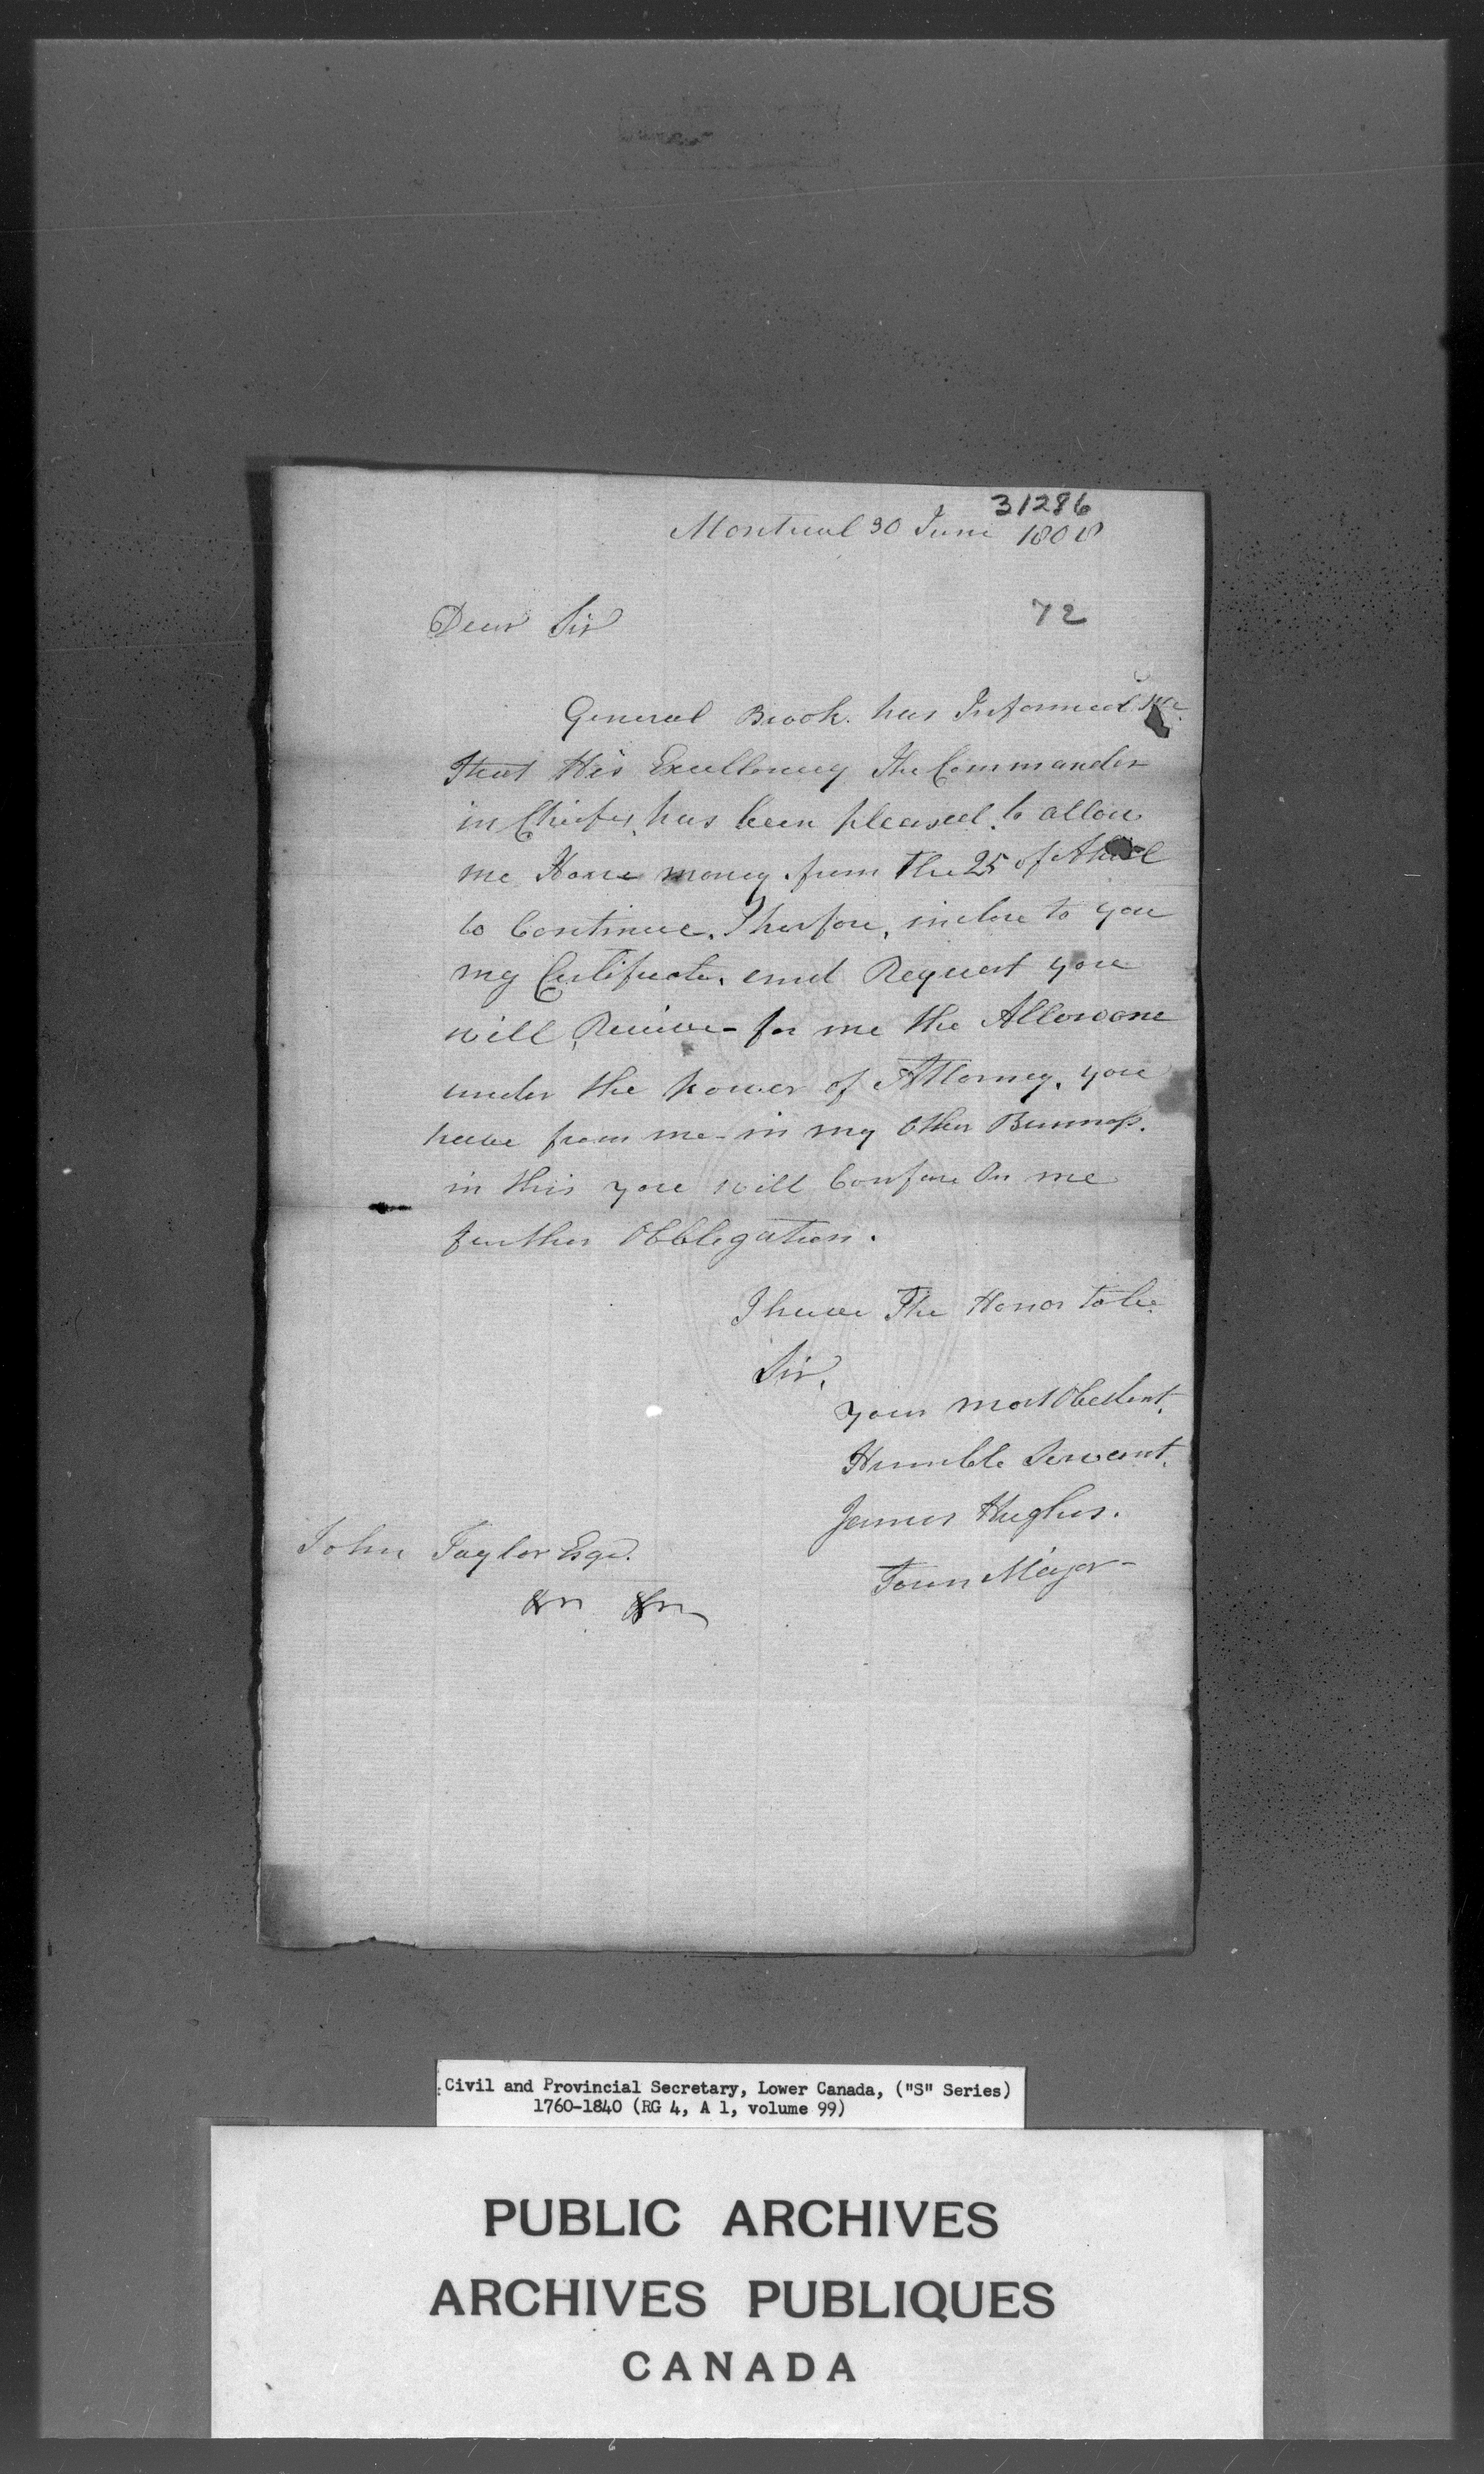 31286
Montreal 30 June 1808
Dear Sir
72
General Brock. has Informed me.
that His Excellency The Commander
in Chief, has been pleased. to allow
me Horse money. from The 25 of April
to Continue. Therfore, inclose to you
my Certificate, and Request you
will Receive - for me the Allowance
under the power of Attorney. you
have from me - in my Other Bussness.
in this you will Confere On me
further Obblegation.
I have The Honor to be.
Sir,
your most Obedient,
Humble Servant,
James Hughes.
Town Major -
John Taylor Esqr.
&c &c
Civil and Provincial Secretary, Lower Canada, ("S" Series)
1760-1840 (RG 4, A 1, volume 99)
PUBLIC ARCHIVES
ARCHIVES PUBLIQUES
CANADA